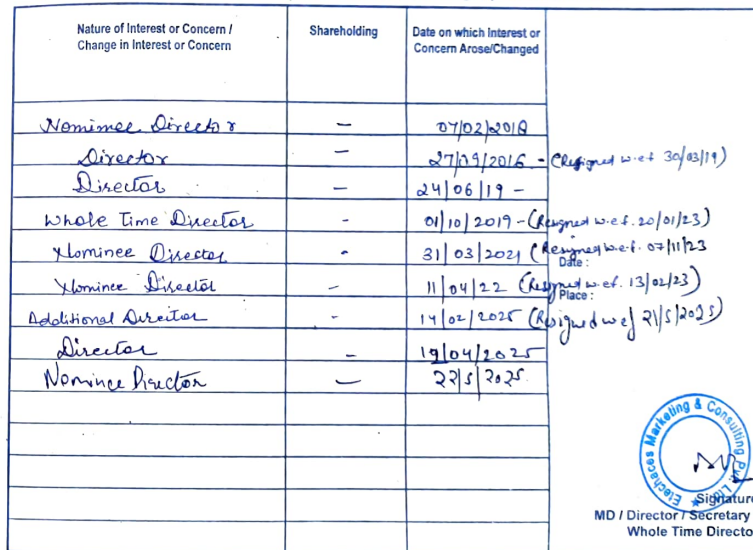 Nature of Interest or Concern / Change in Interest or Concern | Shareholding | Date on which Interest or Concern Arose/Changed
Nominee Director | – | 07/02/2018
Director | – | 27/09/2016 - (Resigned w.e.f 30/03/19)
Director | – | 24/06/19 -
Whole Time Director | - | 01/10/2019 - (Resigned w.e.f. 20/01/23)
Nominee Director | - | 31/03/2021 (Resigned w.e.f. 07/11/23
Date :
Nominee Director | – | 11/04/22 (Resigned w.e.f. 13/02/23)
Place :
Additional Director | - | 14/02/2025 (Resigned wef 21/5/2025)
Director | – | 19/04/2025
Nominee Director | — | 22/5/2025
Elechaces Marketing & Consulting Pvt. Ltd. ★
Signature
MD / Director / Secretary
Whole Time Directo